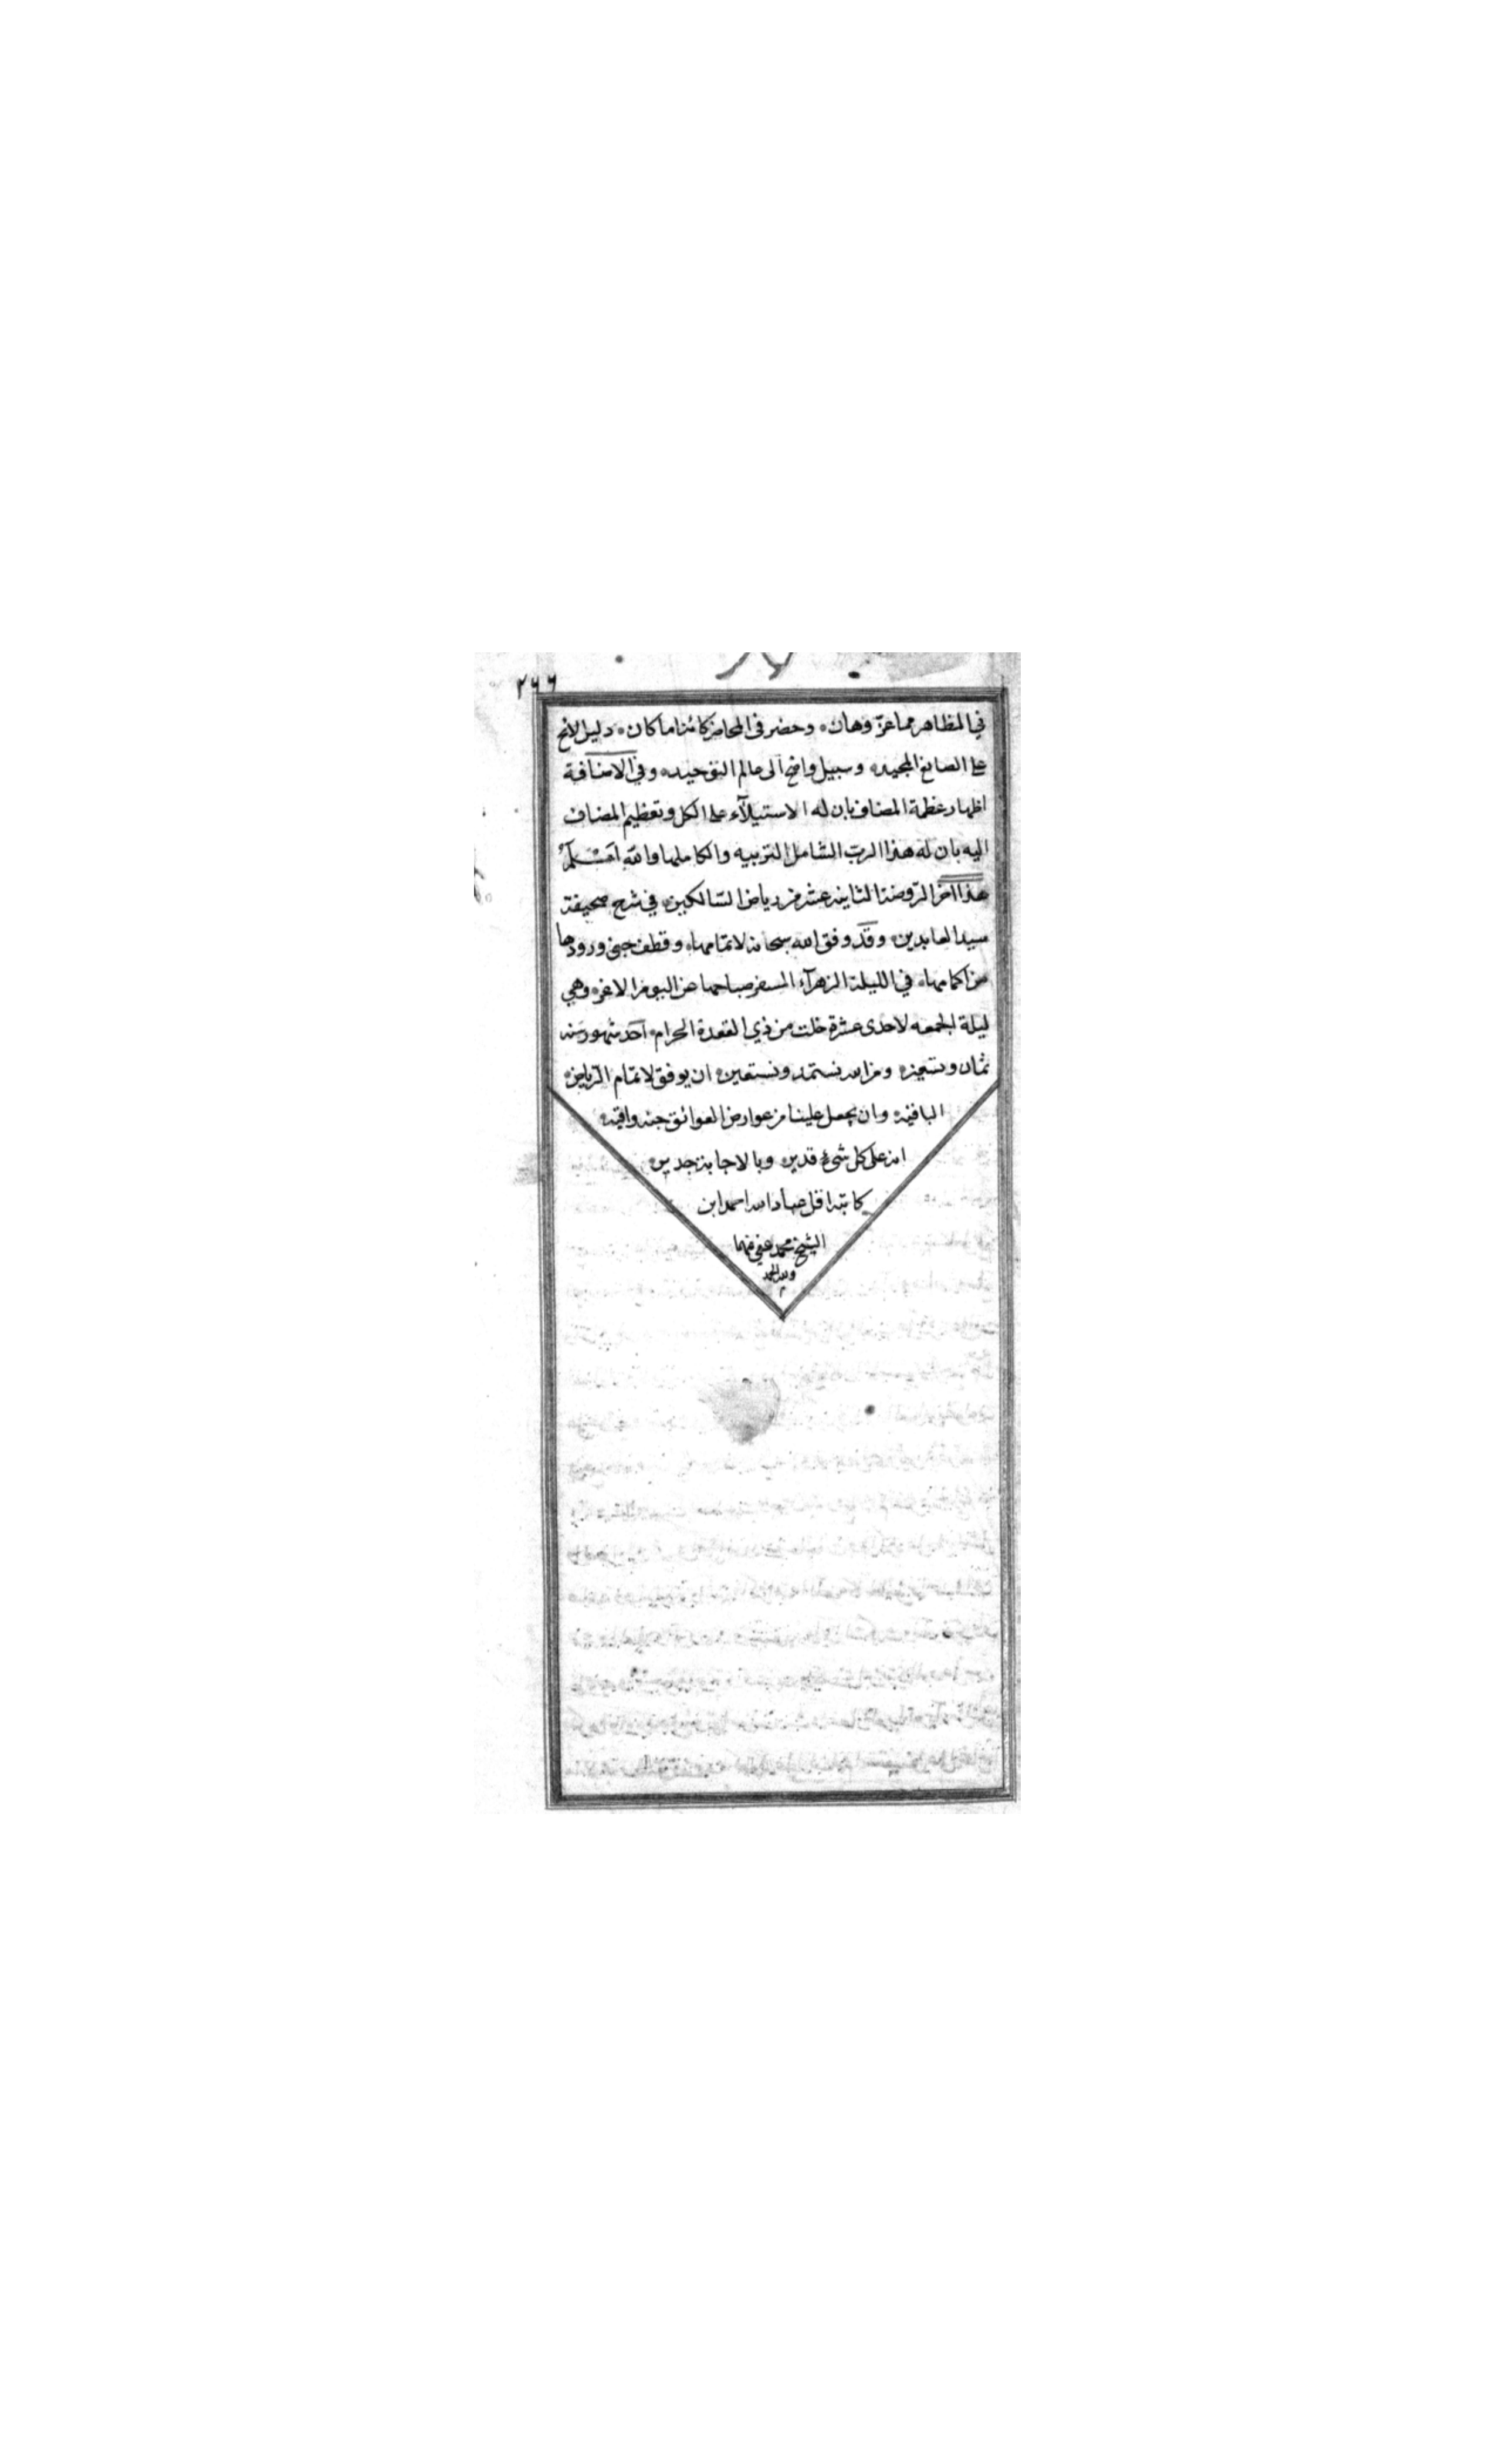 ٢٦٦
في المظاهر مما عزّ وهان وحضر في المحاضر كائنا ما كان دليل لائح
على الصانع المجيد وسبيل واضح الى عالم التوحيد وفي الاضافة
اظهار عظمة المضاف بان له الاستيلآء على الكل وتعظيم المضاف
اليه بان له هذا الرب الشامل التربيه والكاملها والله اعلم
هذا آخر الروضة الثانية عشر من رياض السالكين في شرح صحيفة
سيد العابدين وقد وفق الله سبحانه لاتمامها وقطف جنى ورودها
من اكمامها في الليلة الزهرآء المسفر صباحها عن اليوم الاغر وهي
ليلة الجمعه لاحدى عشرة خلت من ذي القعدة الحرام احد شهور سنه
ثمان وتسعين ومن الله نستمد ونستعين ان يوفق لاتمام الرياض
الباقية وان يجعل علينا من عوارض العوائق جنه واقيه
انه على كل شئ قدير وبالاجابة جدير
كاتبه اقل عباد الله احمد ابن
الشيخ محمد عفي عنهما
ولله الحمد
م